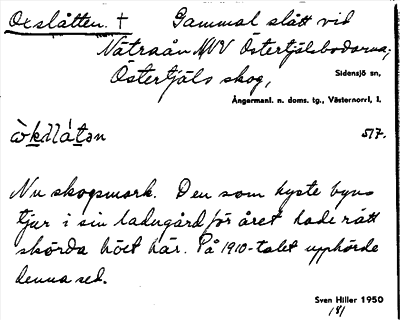 Oxslåtten. † Gammal slått vid
Nätraån NVV Östertjälsbodarna,
Östertjäls skog,
Sidensjö sn,
Ångermanl. n. doms. tg., Västernorrl. l.
517.
Nu skogsmark. Den som hyste byns
tjur i sin ladugård för året hade rätt
skörda höet här. På 1910-talet upphörde
denna sed.
Sven Hiller 1950
181